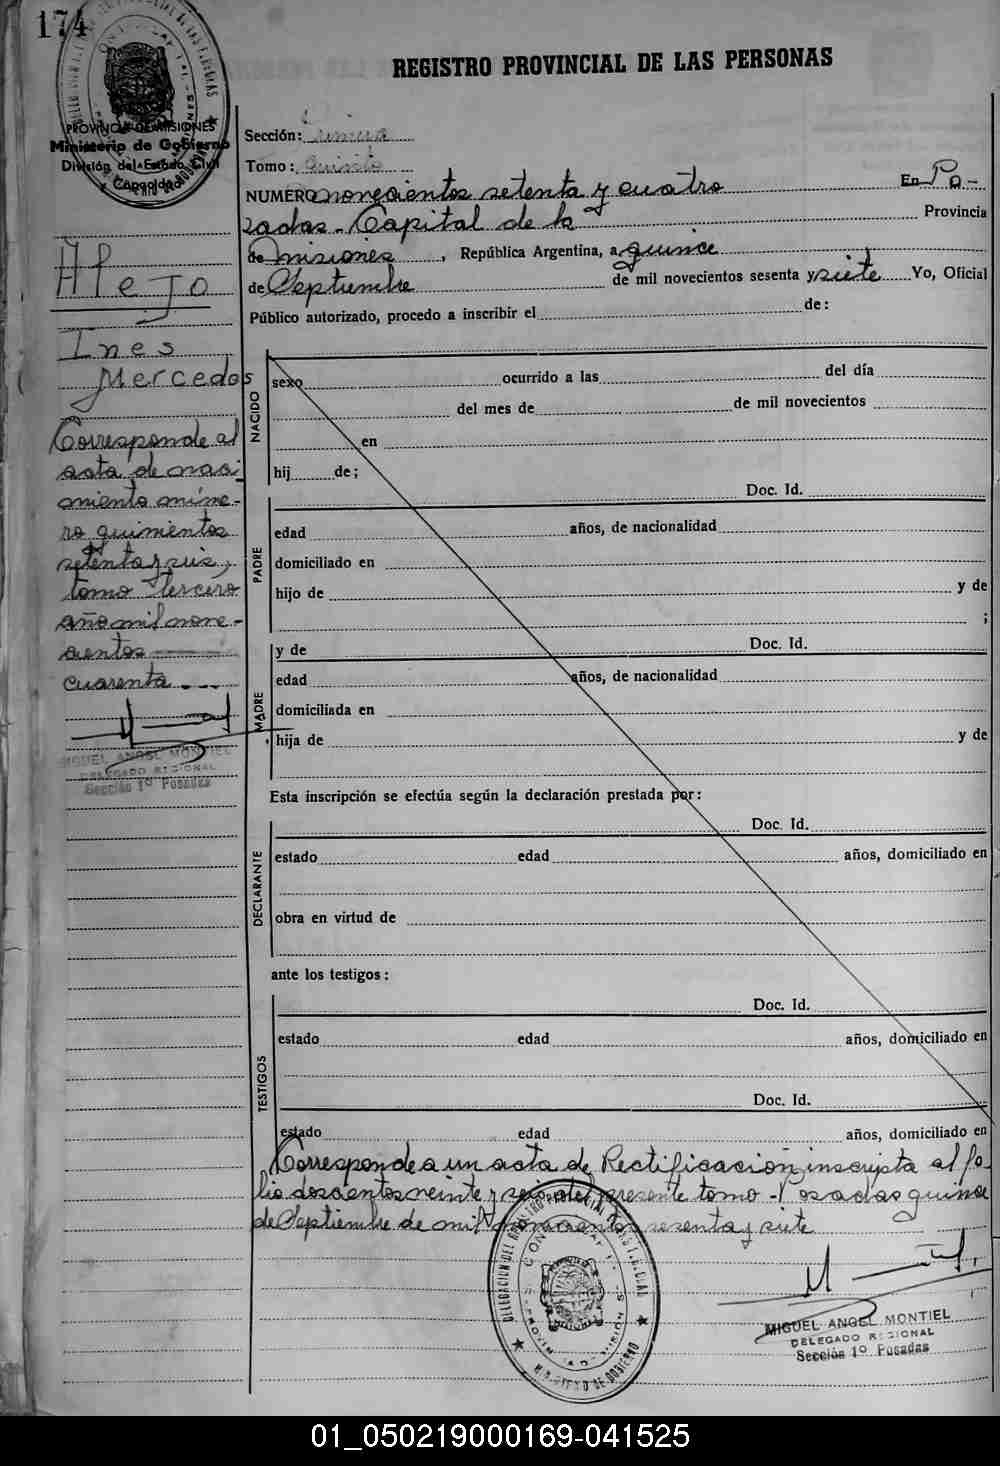 174
PROVINCIA DE MISIONES
Ministerio de Gobierno
División del Estado Civil
Capacidad
REGISTRO PROVINCIAL DE LAS PERSONAS
Sección: Primera
Tomo: Quinto
NUMERO novecientos setenta y cuatro En Po-
sadas - Capital de la Provincia
de Misiones, República Argentina, a quince
de Septiembre de mil novecientos sesenta y siete Yo, Oficial
Público autorizado, procedo a inscribir el de:
Alejo
Ines
Mercedes
Corresponde al
acta de naci
miento núme-
ro quinientos
setenta y seis,
tomo tercero
año mil nove-
cientos
cuarenta
MIGUEL ANGEL MONTIEL
DELEGADO REGIONAL
Sección 1º Posadas
NACIDO
sexo ocurrido a las del día
del mes de de mil novecientos
en
hij de;
PADRE
Doc. Id.
edad años, de nacionalidad
domiciliado en
hijo de y de
;
MADRE
y de Doc. Id.
edad años, de nacionalidad
domiciliada en
hija de y de
Esta inscripción se efectúa según la declaración prestada por:
DECLARANTE
Doc. Id.
estado edad años, domiciliado en
obra en virtud de
ante los testigos:
TESTIGOS
Doc. Id.
estado edad años, domiciliado en
Doc. Id.
estado edad años, domiciliado en
Corresponde a un acta de Rectificación inscripta al fo-
lio doscientos veinte y seis del presente tomo - Posadas quince
de Septiembre de mil novecientos sesenta y siete
DELEGACION DEL REGISTRO PROVINCIAL
MINISTERIO DE GOBIERNO
MIGUEL ANGEL MONTIEL
DELEGADO REGIONAL
Sección 1º Posadas
01_050219000169-041525